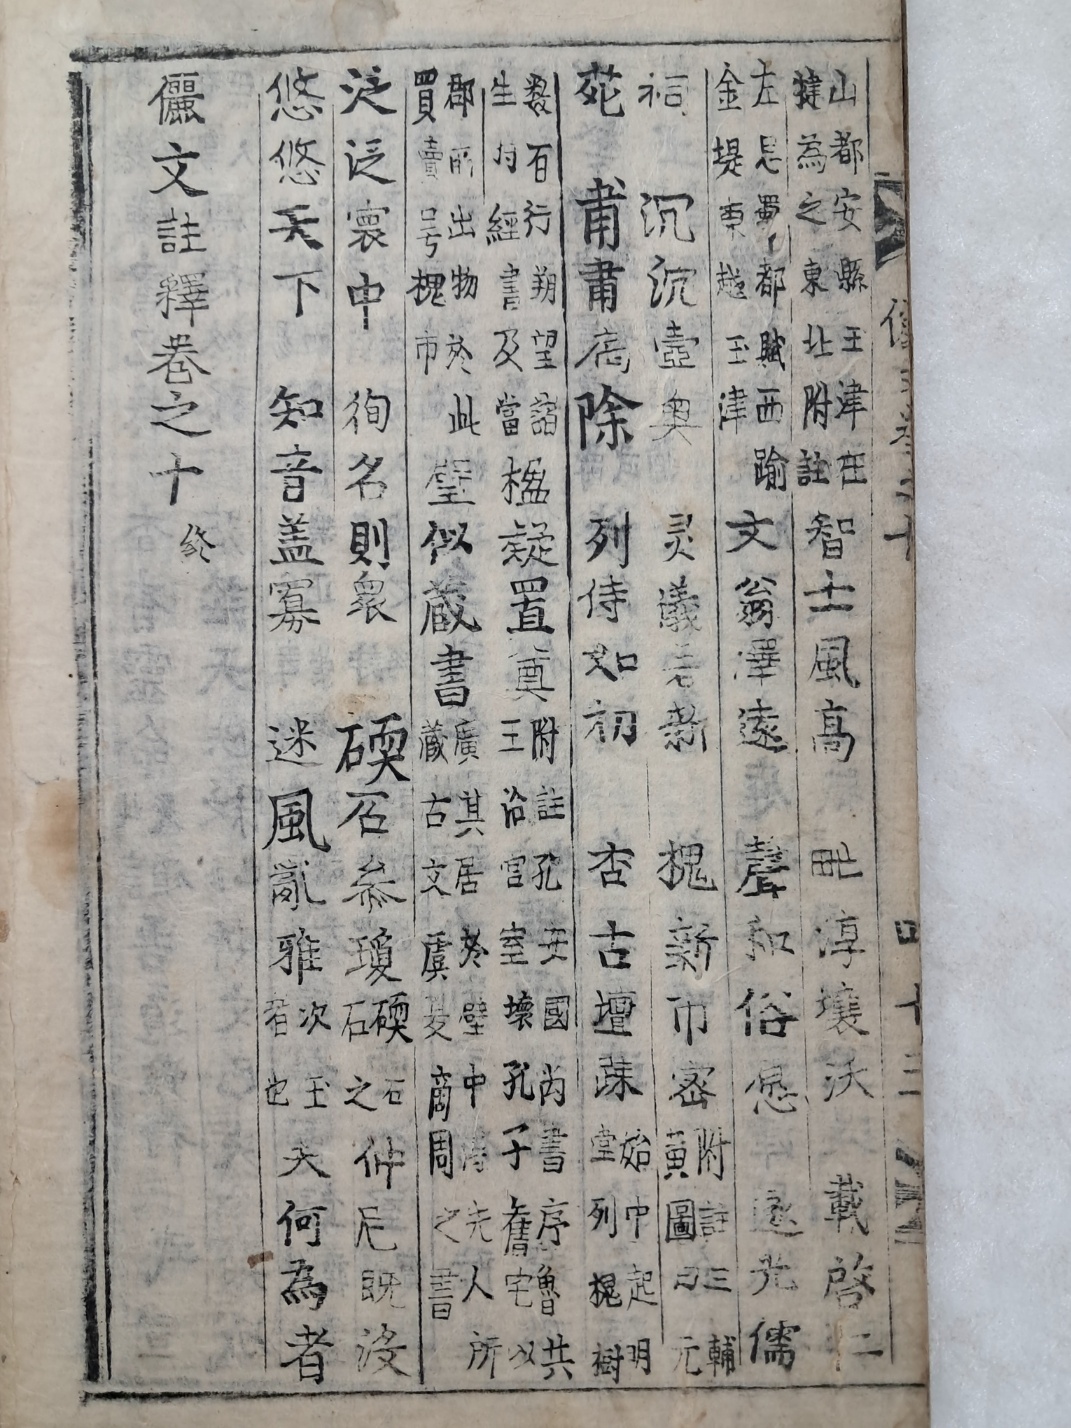 儷文卷之十 四十三
山都安縣玉津在
揵為之東北附註
智士風高 毗淳壤沃 載啓仁
左思蜀都賦西踰
金堤東越玉津
文翁澤遠 聲和俗愿 遂光儒
祠 沉沉壼奧 灵議若新 槐新市密
附註三輔
黃圖曰元
苑 肅肅扃除 列侍如初 杏古壇蔬
始中起明
堂列槐樹
數百行朔望諸
生持經書及當
楹疑置奠
附註孔安國尚書序魯共
王治宮室壞孔子舊宅以
郡所出物於此
買賣号槐市
壁似蔵書
廣其居於壁中淂先人所
藏古文虞夏商周之書
泛泛寰中 徇名則衆 碝石叅瓊
碝石
石之
仲尼既没
悠悠天下 知音盖寡 迷風亂雅
次玉
者也
夫何為者
儷文註釋卷之十 終